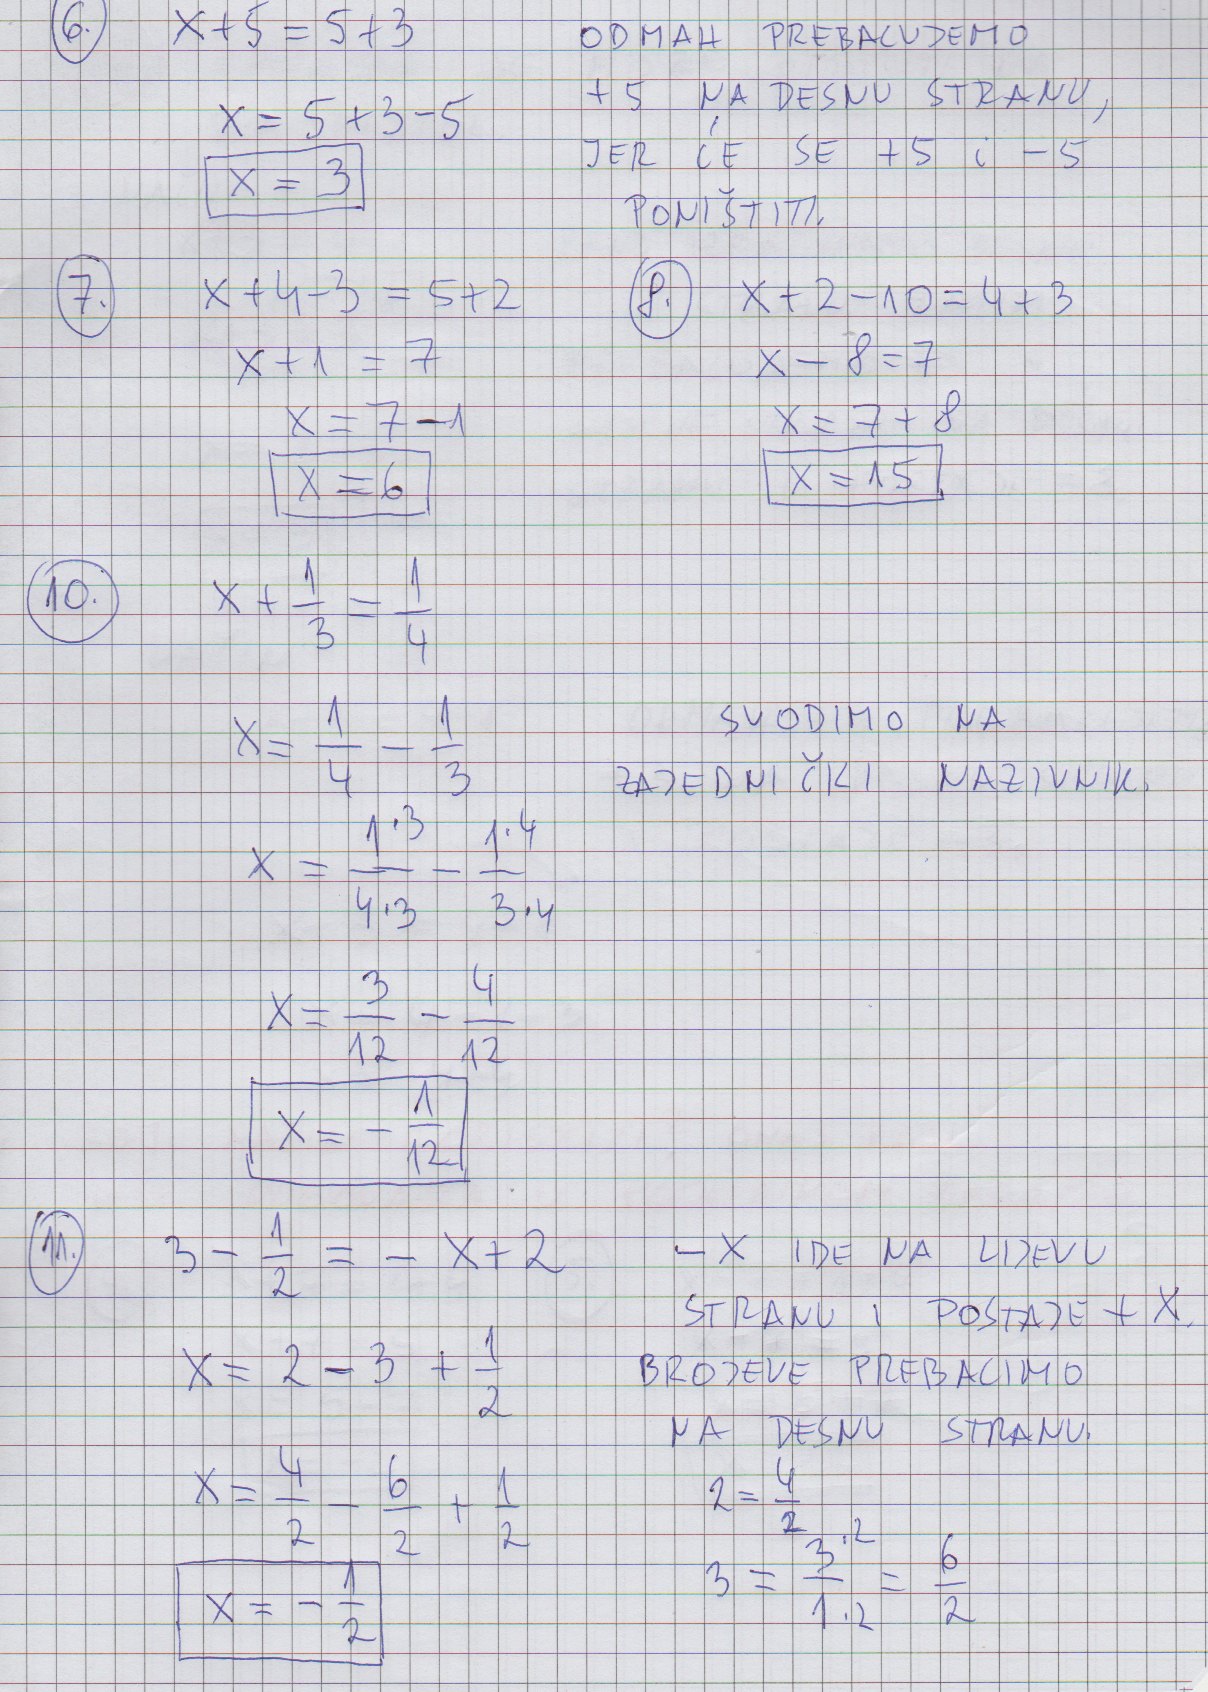 6. x+5=5+3
ODMAH PREBACUJEMO
x=5+3-5
+5 NA DESNU STRANU,
x=3
JER ĆE SE +5 i -5
PONIŠTITI.
7. x+4-3=5+2
x+1=7
x=7-1
x=6
8. x+2-10=4+3
x-8=7
x=7+8
x=15
10. x+1/3=1/4
x=1/4-1/3
SVODIMO NA
ZAJEDNIČKI NAZIVNIK.
x=1·3/4·3-1·4/3·4
x=3/12-4/12
x=-1/12
11. 3-1/2=-x+2
-x IDE NA LIJEVU
STRANU I POSTAJE +x.
x=2-3+1/2
BROJEVE PREBACIMO
NA DESNU STRANU.
x=4/2-6/2+1/2
2=4/2
3=3·2/1·2=6/2
x=-1/2